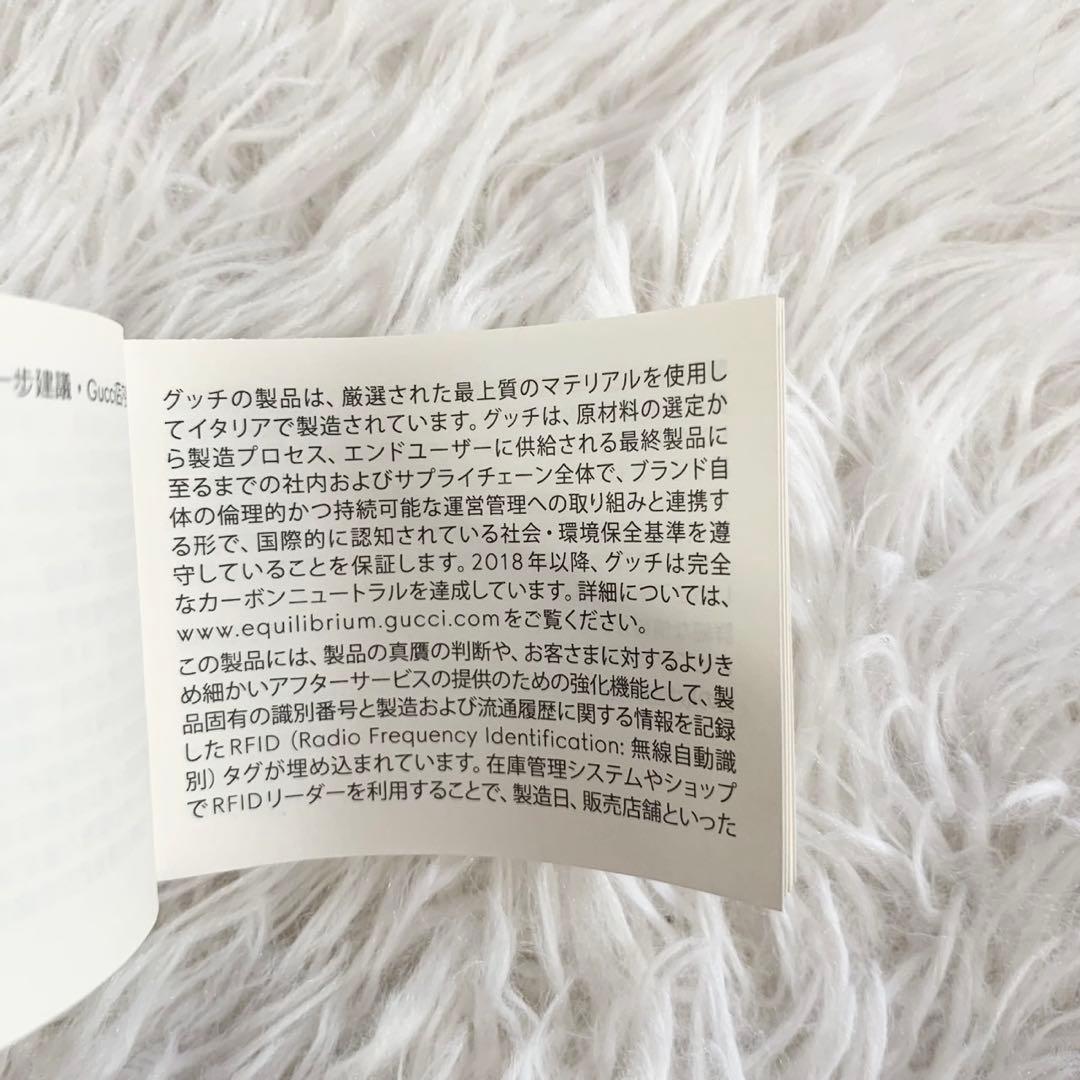 一步建議，Gucci店
グッチの製品は、厳選された最上質のマテリアルを使用し
てイタリアで製造されています。グッチは、原材料の選定か
ら製造プロセス、エンドユーザーに供給される最終製品に
至るまでの社内およびサプライチェーン全体で、ブランド自
体の倫理的かつ持続可能な運営管理への取り組みと連携す
る形で、国際的に認知されている社会・環境保全基準を遵
守していることを保証します。2018年以降、グッチは完全
なカーボンニュートラルを達成しています。詳細については、
www.equilibrium.gucci.comをご覧ください。
この製品には、製品の真贋の判断や、お客さまに対するよりき
め細かいアフターサービスの提供のための強化機能として、製
品固有の識別番号と製造および流通履歴に関する情報を記録
したRFID（Radio Frequency Identification: 無線自動識
別）タグが埋め込まれています。在庫管理システムやショップ
でRFIDリーダーを利用することで、製造日、販売店舗といった